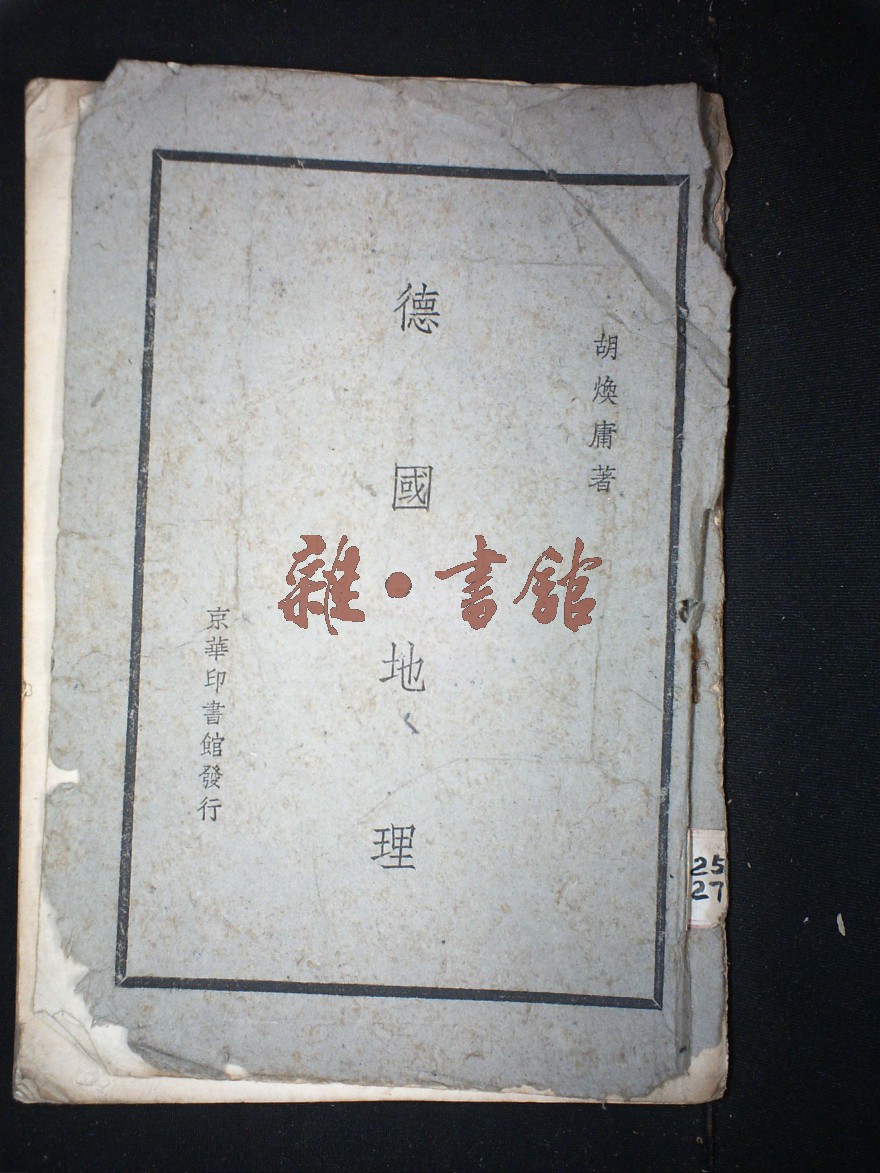 胡煥庸著
德國地理
京華印書館發行
雜·書館
25
27